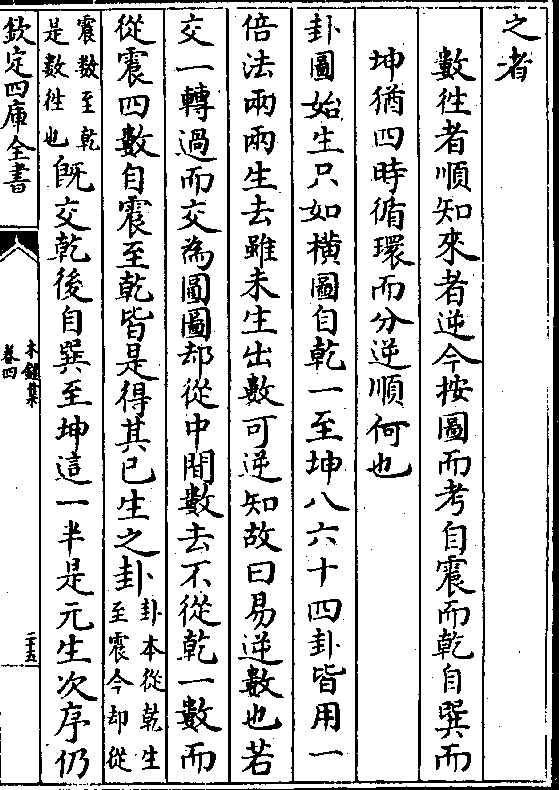 之者
數徃者順知來者逆今按圖而考自震而乾自巽而
坤猶四時循環而分逆順何也
卦圖始生只如橫圖自乾一至坤八六十四卦皆用一
倍法兩兩生去雖未生出數可逆知故曰易逆數也若
交一轉過而交為圓圖却從中間數去不從乾一數而
從震四數自震至乾皆是得其已生之卦卦本從乾生
至震今却從
震數至乾
是數徃也既交乾後自巽至坤這一半是元生次序仍
欽定四庫全書
木鐘集
卷四
二十五